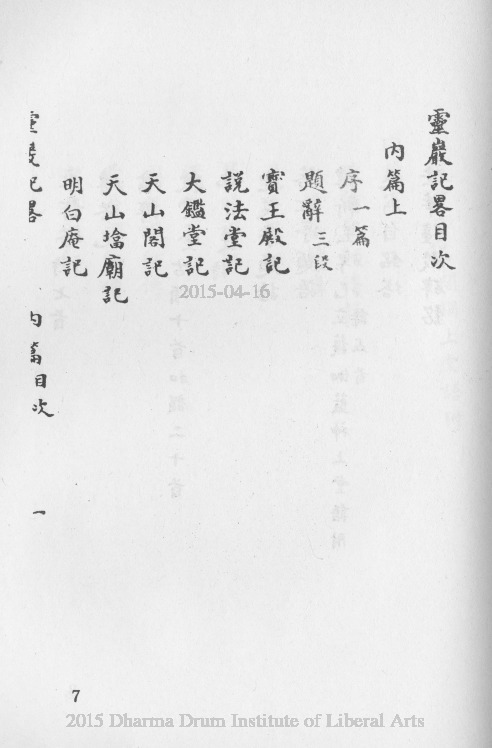 靈巖記畧目次
內篇上
序一篇
題辭三段
寶王殿記
說法堂記
大鑑堂記
天山閣記
天山墖廟記
明白庵記
靈巖記畧 內篇目次 一
2015-04-16
7
2015 Dharma Drum Institute of Liberal Arts